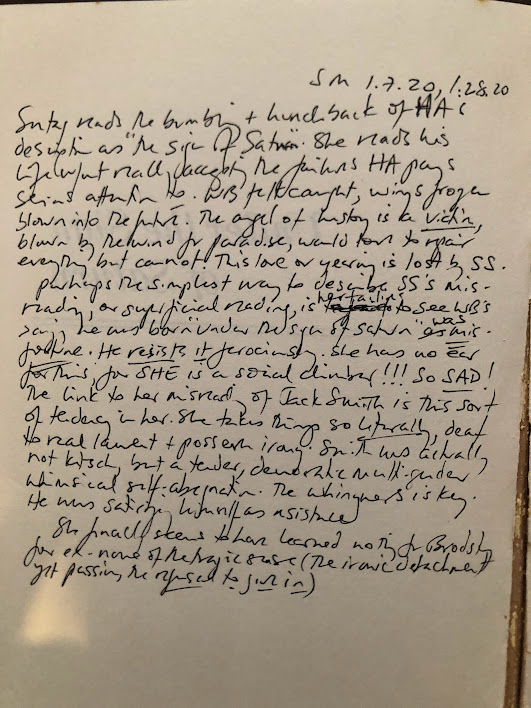 SM 1.7.20, 1.28.20
reads the bumbling + hunchback of HA's
as "the sign of Saturn. She reads his
life without really accepting the failures HA pays
attention to. WB felt caught, wings frozen
blown into the future. The angel of history is a victim,
blown by the wind fr paradise, would love to repair
everything but cannot. This love or yearning is lost by SS.
perhaps the simplest way to describe SS's mis-
reading, or superficial reading, is her failing to see WB's
saying he was born under the sign of Saturn was mis-
fortune. He resists it ferociously. She has no ear
for this, for SHE is a social climber!!! So SAD!
The link to her misreading of Jack Smith is this sort
of tendency in her. She takes things so literally, deaf
to real lament + possessive irony. Smith was actually
not kitsch, but a tender, democratic multi-gender
whimsical self-abegnation. The is key.
He was himself as resistance
She finally seems to have learned nothing fr Brodsky
for ex- none of the tragic sense (The ironic detachment
yet passion, the refusal to give in)